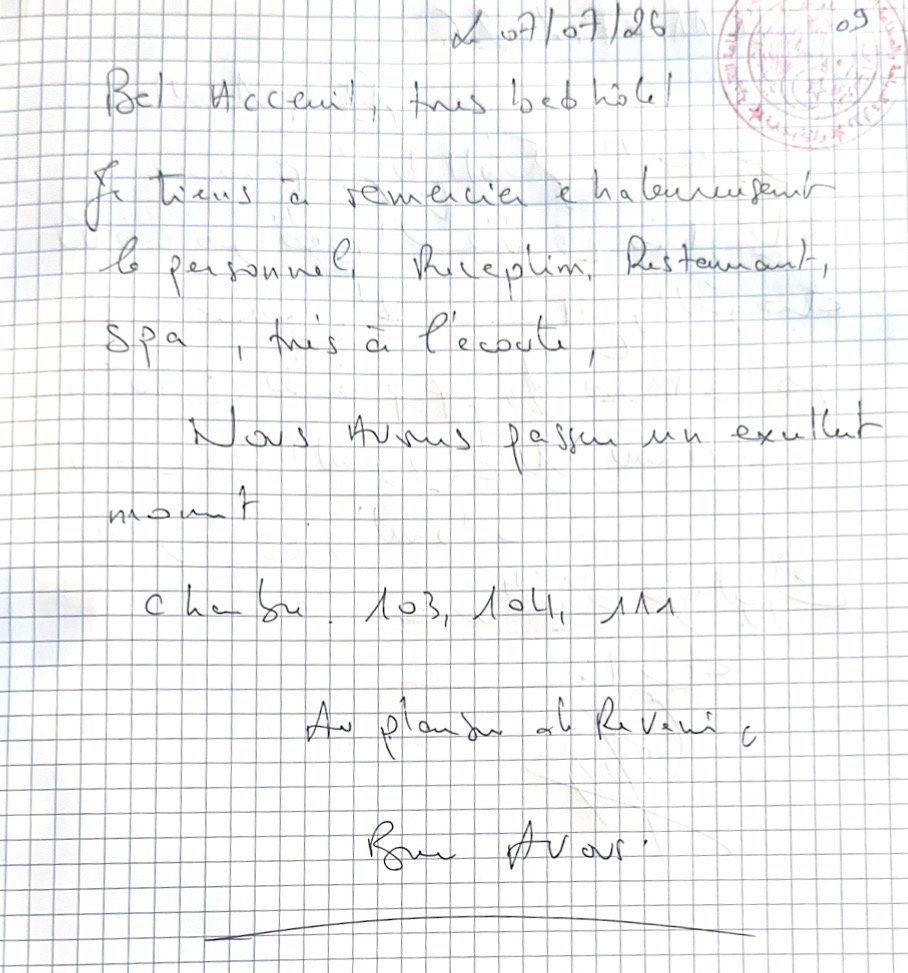 Le 07/07/26
09
Bel Acceuil, tres bel hôtel
Je tiens à remercier chaleureusement
le personnel, Reception, Restaurant,
Spa, très à l'écoute,
Nous Avons passer un excellent
moment
Chambre. 103, 104, 111
Au plaisir de Revenir
Bon Avous.